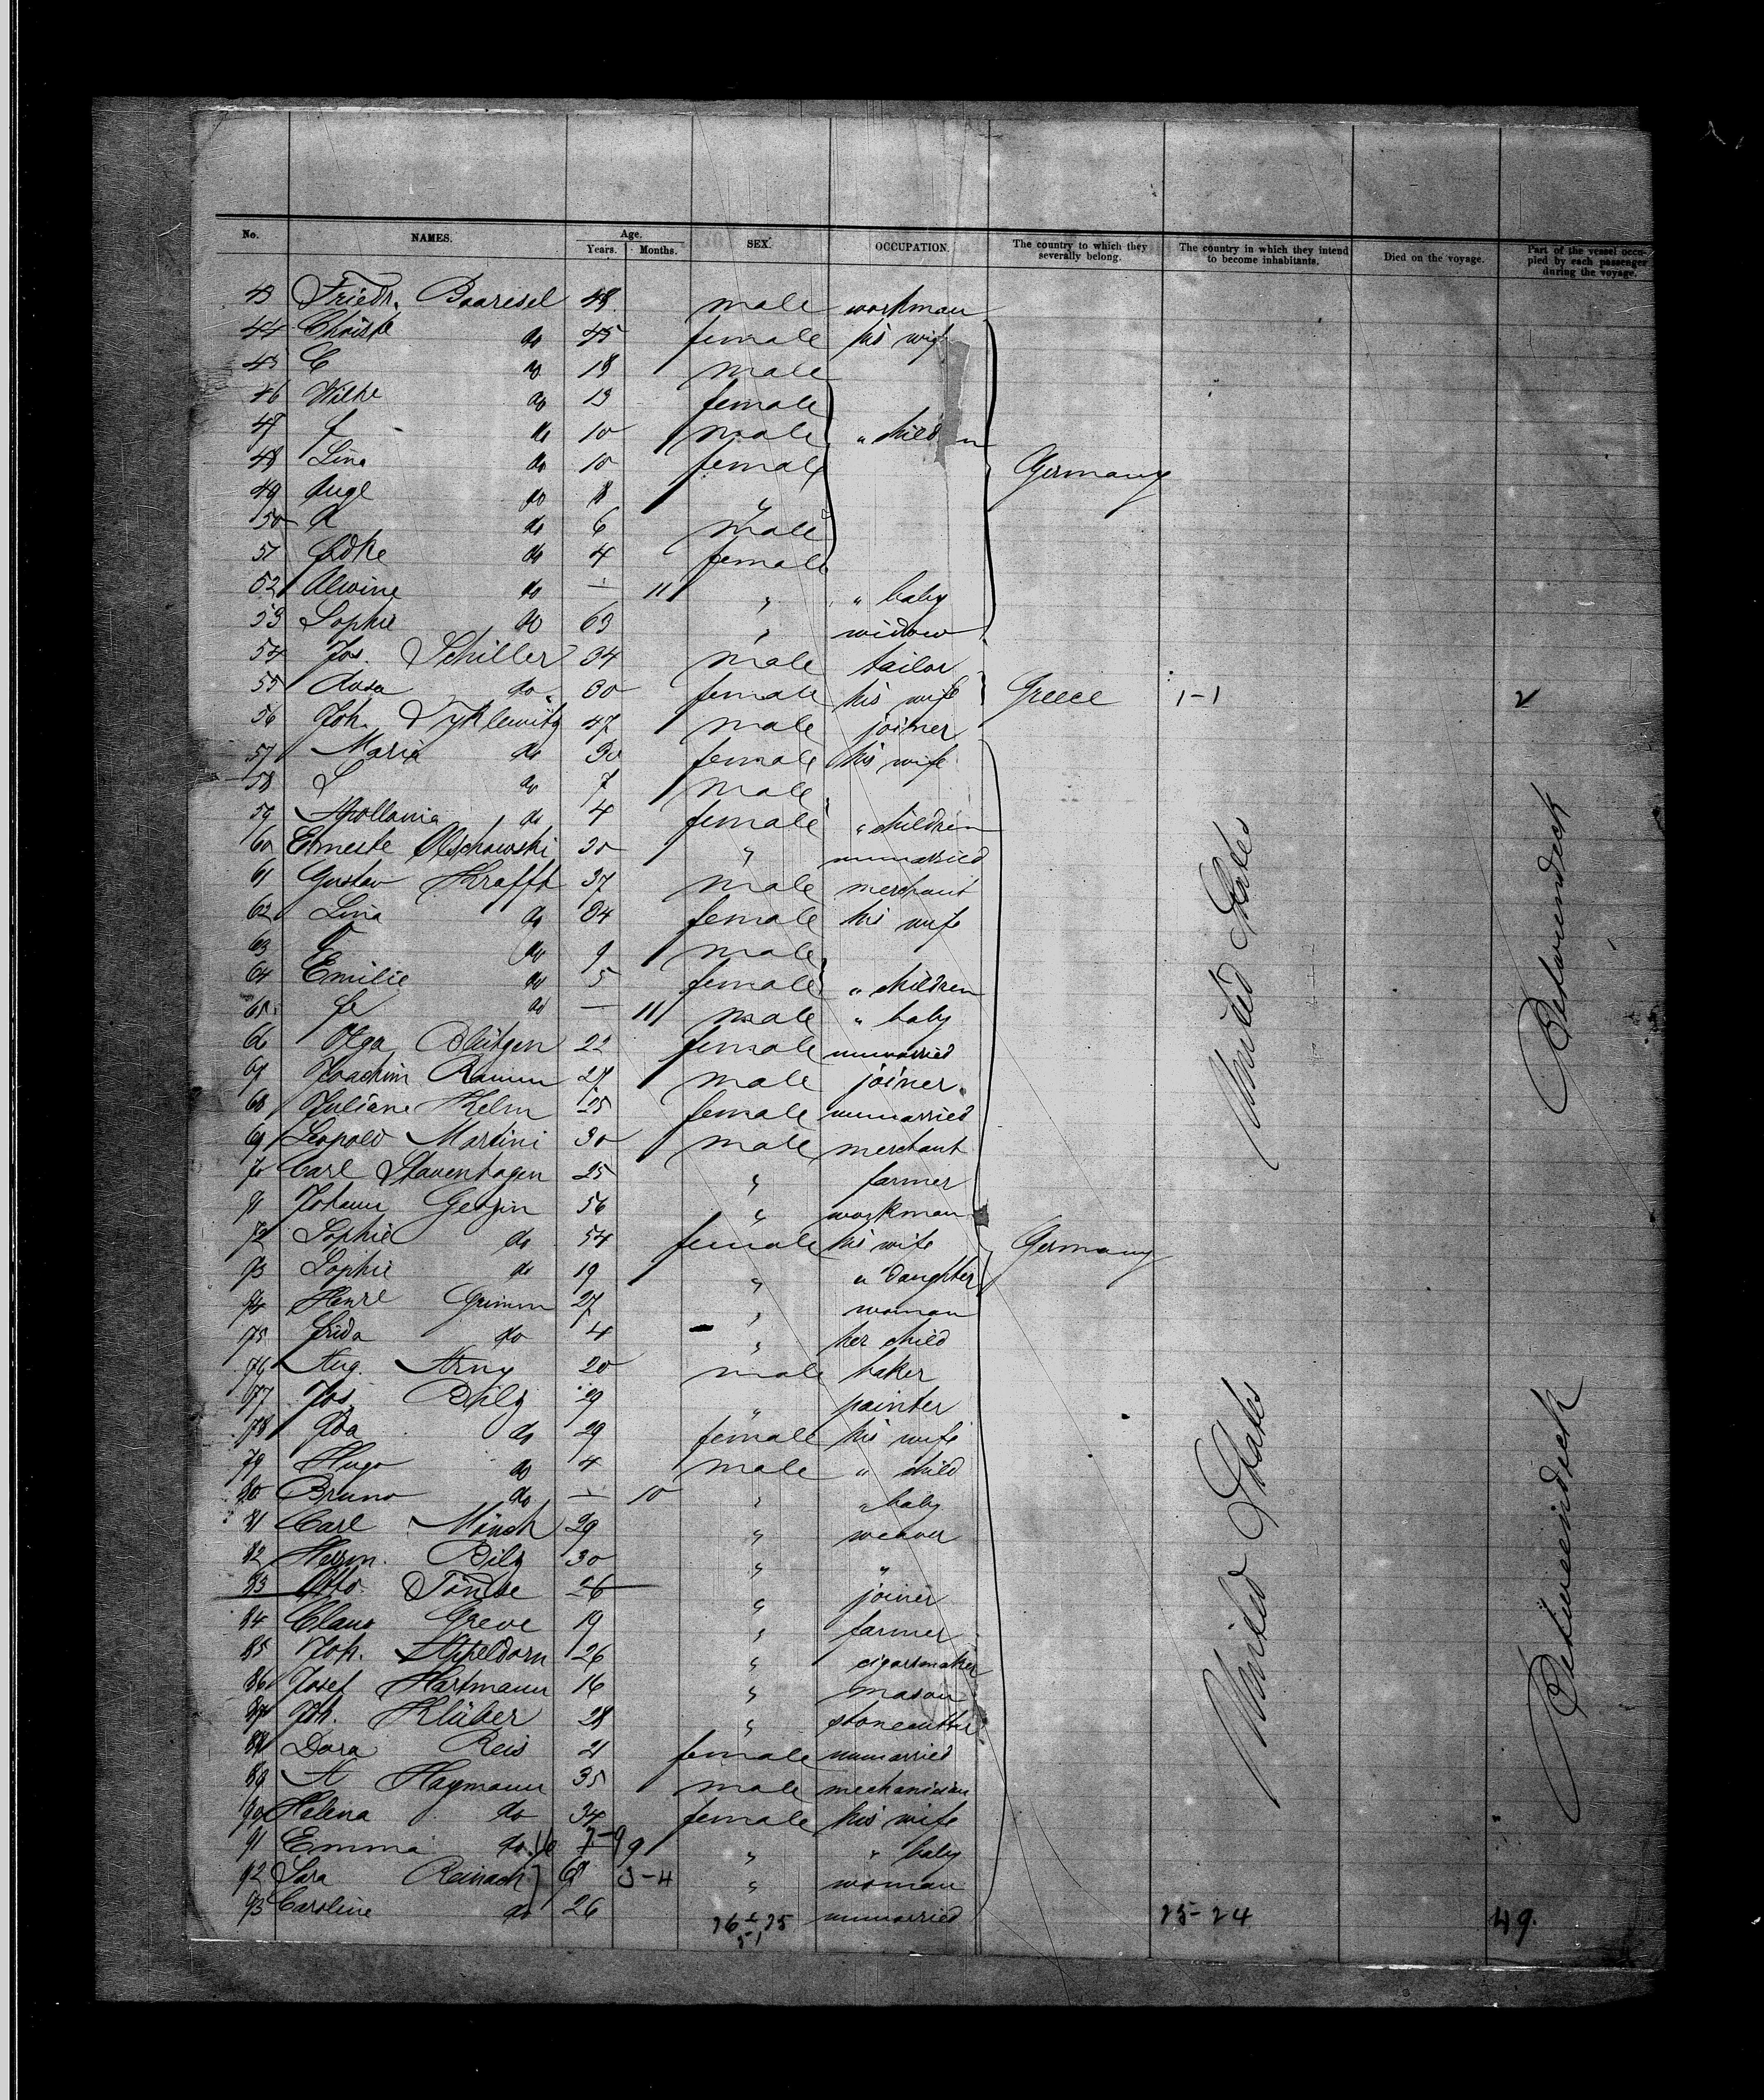 No. NAMES. Age. Years. Months. SEX. OCCUPATION. The country to which they severally belong. The country in which they intend to become inhabitants. Died on the voyage. Part of the vessel occupied by each passenger during the voyage.
43 Friedr. 48 male workman
44 Christe do 45 female his wife
45 C do 18 male
46 Wilhe do 13 female
47 do 10 male " children
48 Lina do 10 female Germany
49 Auge do 8 "
50 do 6 male
51 do 4 female
52 Alwine do — 11 " " baby
53 Sophie do 63 " widow
54 Jos. Schiller 34 male tailor
55 Rosa do 30 female his wife Greece 1-1 2
56 Joh. 47 male joiner
57 Maria do 30 female his wife
58 do 7 male
59 Apollonia do 4 female " children
60 Erneste Olschowski 30 " unmarried
61 Gustav Krafft 37 male merchant
62 Lina do 34 female his wife
63 do 9 male
64 Emilie do 5 female " children
65 do — 11 male " baby
66 Olga Blütgen 22 female unmarried
67 Joachim Ramm 27 male joiner
68 Juliane Kelm 25 female unmarried
69 Leopold Martini 30 male merchant
70 Carl Stavenhagen 25 " farmer
71 Johann 56 " workman
72 Sophie do 54 female his wife Germany
73 Sophie do 19 " " daughter
74 Henre Grimm 27 " woman
75 Frida do 4 " her child
76 Aug. 20 male baker
77 Jos. Bilz 29 " painter
78 Ida do 29 female his wife
79 Hugo do 4 male " child
80 Bruno do — 10 " " baby
81 Carl Mönch 29 " weaver
82 Herm. Bilz 30 " "
83 Otto 26 " joiner
84 Claus Greve 19 " farmer
85 Joh. Appeldorn 26 " cigarsmaker
86 Josef Hartmann 16 " mason
87 Joh. Klüber 28 " stonecutter
88 Dora Reis 21 female unmarried
89 A Haymann 35 male mechanician
90 Helena do 34 female his wife
91 Emma do 9 " " baby
92 Sara Reinach 3-4 " woman
93 Caroline do 26 unmarried 25-24 49.
United States
Betweendeck
United States
Betweendeck